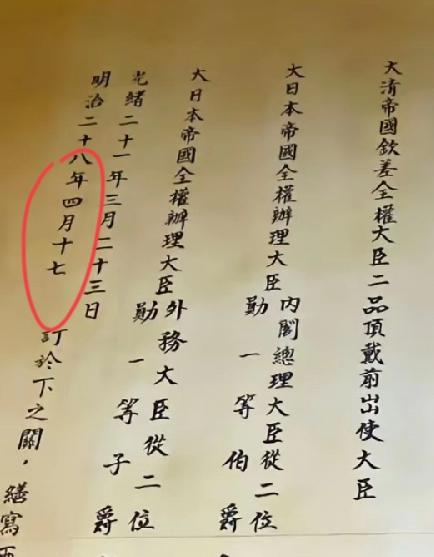 大清帝國欽差全權大臣二品頂戴前出使大臣
大日本帝國全權辦理大臣內閣總理大臣從二位
勛一等伯爵
大日本帝國全權辦理大臣外務大臣從二位
勛一等子爵
光緒二十一年三月二十三日
明治二十八年四月十七
訂於下之關，繕寫